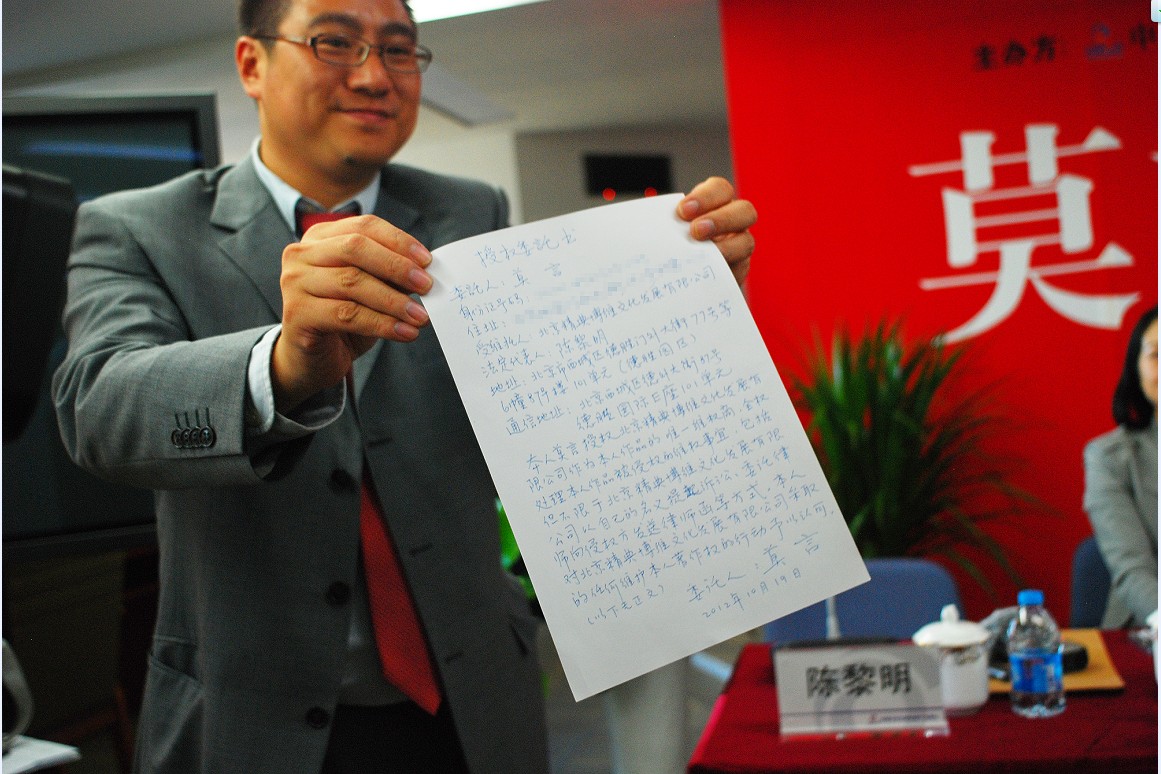 主办方：中
莫
授权委托书
委托人：莫言
身份证号码：
住址：
受维托人：北京精典博维文化发展有限公司
法定代表人：陈黎明
地址：北京市西城区德胜门外大街77号等
6幢8号楼101单元（德胜园区）
通信地址：北京西城区德外大街83号
德胜国际B座101单元
本人莫言授权北京精典博维文化发展有
限公司作为本人作品的唯一维权商，全权
处理本人作品被侵权的维权事宜，包括
但不限于北京精典博维文化发展有限
公司以自己的名义提起诉讼、委托律
师向侵权方发送律师函等方式。本人
对北京精典博维文化发展有限公司采取
的任何维护本人著作权的行动予以认可。
（以下无正文）
委托人：莫言
2012年10月19日
陈黎明